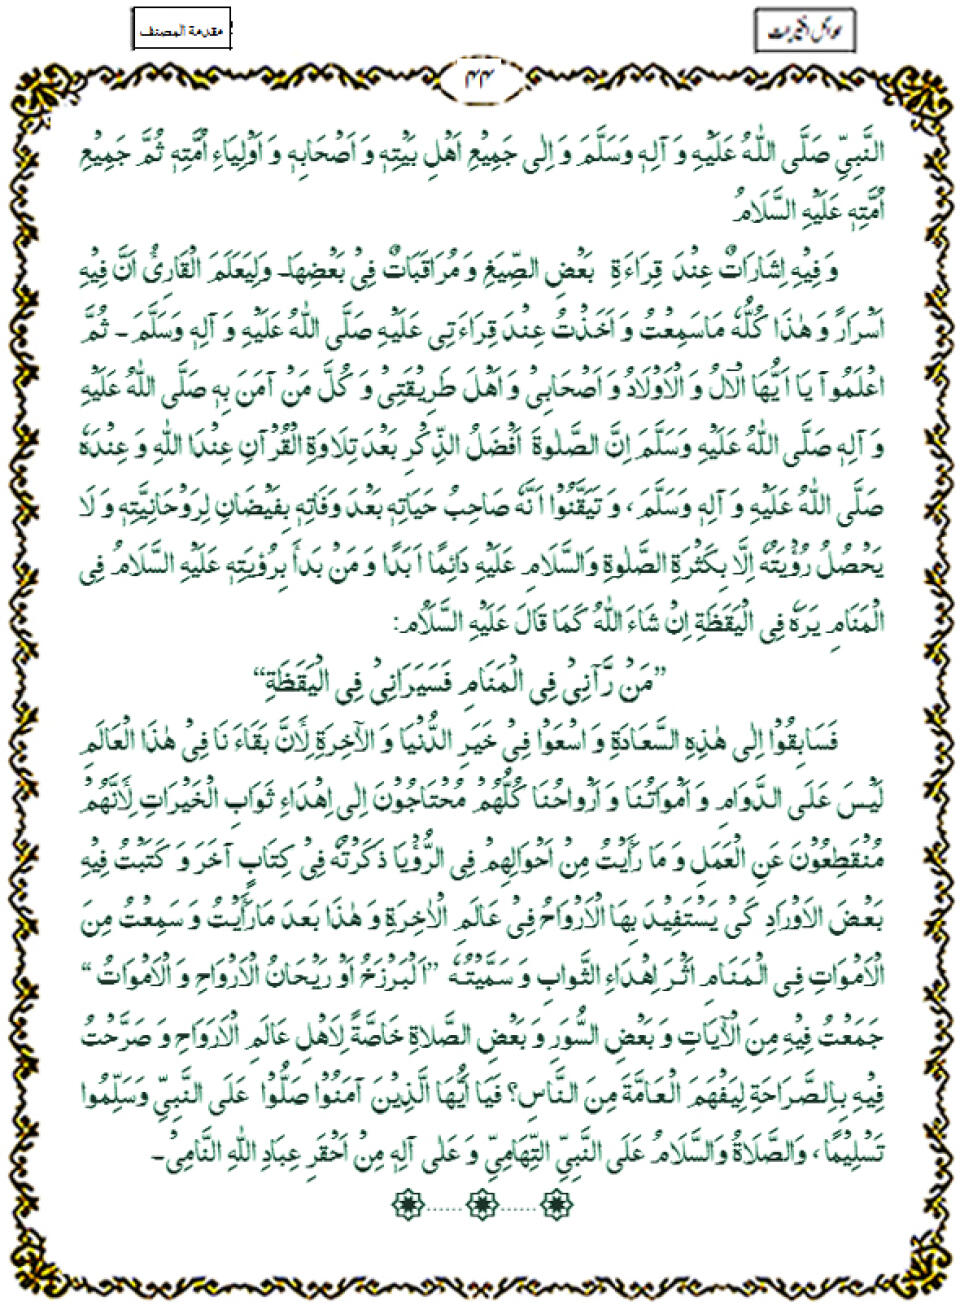 مقدمة المصنف
۴۴
النَّبِيِّ صَلَّى اللّٰهُ عَلَيْهِ وَ آلِهٖ وَسَلَّمَ وَ اِلٰى جَمِيْعِ اَهْلِ بَيْتِهٖ وَ اَصْحَابِهٖ وَ اَوْلِيَاءِ اُمَّتِهٖ ثُمَّ جَمِيْعِ
اُمَّتِهٖ عَلَيْهِ السَّلَامُ
وَ فِيْهِ اِشَارَاتٌ عِنْدَ قِرَاءَةِ بَعْضِ الصِّيَغِ وَ مُرَاقَبَاتٌ فِيْ بَعْضِهَا۔ وَلِيَعْلَمَ الْقَارِئُ اَنَّ فِيْهِ
اَسْرَارً وَ هٰذَا كُلُّهٗ مَاسَمِعْتُ وَ اَخَذْتُ عِنْدَ قِرَاءَتِى عَلَيْهِ صَلَّى اللّٰهُ عَلَيْهِ وَ آلِهٖ وَسَلَّمَ ۔ ثُمَّ
اعْلَمُوْآ يَا اَيُّهَا الْآلُ وَ الْاَوْلَادُ وَ اَصْحَابِىْ وَ اَهْلَ طَرِيْقَتِىْ وَ كُلَّ مَنْ آمَنَ بِهٖ صَلَّى اللّٰهُ عَلَيْهِ
وَ آلِهٖ صَلَّى اللّٰهُ عَلَيْهِ وَسَلَّمَ اِنَّ الصَّلٰوةَ اَفْضَلُ الذِّكْرِ بَعْدَ تِلَاوَةِ الْقُرْآنِ عِنْدَا اللّٰهِ وَ عِنْدَهٗ
صَلَّى اللّٰهُ عَلَيْهِ وَ آلِهٖ وَسَلَّمَ، وَ تَيَقَّنُوْا اَنَّهٗ صَاحِبُ حَيَاتِهٖ بَعْدَ وَفَاتِهٖ بِفَيْضَانِ لِرَوْحَانِيَّتِهٖ وَ لَا
يَحْصُلُ رُؤْيَتُهٗ اِلَّا بِكَثْرَةِ الصَّلٰوةِ وَالسَّلَامِ عَلَيْهِ دَائِمًا اَبَدًا وَ مَنْ بَدَأَ بِرُؤيَتِهٖ عَلَيْهِ السَّلَامُ فِى
الْمَنَامِ يَرَهٗ فِى الْيَقَظَةِ اِنْ شَاءَ اللّٰهُ كَمَا قَالَ عَلَيْهِ السَّلَامُ:
”مَنْ رَّآنِىْ فِى الْمَنَامِ فَسَيَرَانِىْ فِى الْيَقَظَةِ“
فَسَابِقُوْا اِلٰى هٰذِهِ السَّعَادَةِ وَ اسْعَوْا فِىْ خَيْرِ الدُّنْيَا وَ الآخِرَةِ لِأَنَّ بَقَاءَ نَا فِىْ هٰذَا الْعَالَمِ
لَيْسَ عَلَى الدَّوَامِ وَ اَمْوَاتُنَا وَ اَرْوَاحُنَا كُلُّهُمْ مُحْتَاجُوْنَ اِلٰى اِهْدَاءِ ثَوَابِ الْخَيْرَاتِ لِأَنَّهُمْ
مُنْقَطِعُوْنَ عَنِ الْعَمَلِ وَ مَا رَأَيْتُ مِنْ اَحْوَالِهِمْ فِى الرُّؤْيَا ذَكَرْتُهٗ فِىْ كِتَابٍ آخَرَ وَ كَتَبْتُ فِيْهِ
بَعْضَ الاَوْرَادِ كَىْ يَسْتَفِيْدَ بِهَا الْاَرْوَاحُ فِىْ عَالَمِ الْاٰخِرَةِ وَ هٰذَا بَعْدَ مَارَأَيْتُ وَ سَمِعْتُ مِنَ
الْاَمْوَاتِ فِى الْمَنَامِ اَثَرَ اِهْدَاءِ الثَّوَابِ وَ سَمَّيْتُهٗ ”اَلْبَرْزَخُ اَوْ رَيْحَانُ الْاَرْوَاحِ وَ الْاَمْوَاتُ“
جَمَعْتُ فِيْهِ مِنَ الْآيَاتِ وَ بَعْضِ السُّوَرِ وَ بَعْضِ الصَّلَاةِ خَاصَّةً لِاَهْلِ عَالَمِ الْاَرْوَاحِ وَ صَرَّحْتُ
فِيْهِ بِالصَّرَاحَةِ لِيَفْهَمَ الْعَامَّةَ مِنَ النَّاسِ؟ فَيَا أَيُّهَا الَّذِيْنَ آمَنُوْا صَلُّوْا عَلَى النَّبِيِّ وَسَلِّمُوا
تَسْلِيْمًا، وَالصَّلَاةُ وَالسَّلَامُ عَلَى النَّبِيِّ التِّهَامِيِّ وَ عَلٰى آلِهٖ مِنْ اَحْقَرِ عِبَادِ اللّٰهِ النَّامِىْ۔